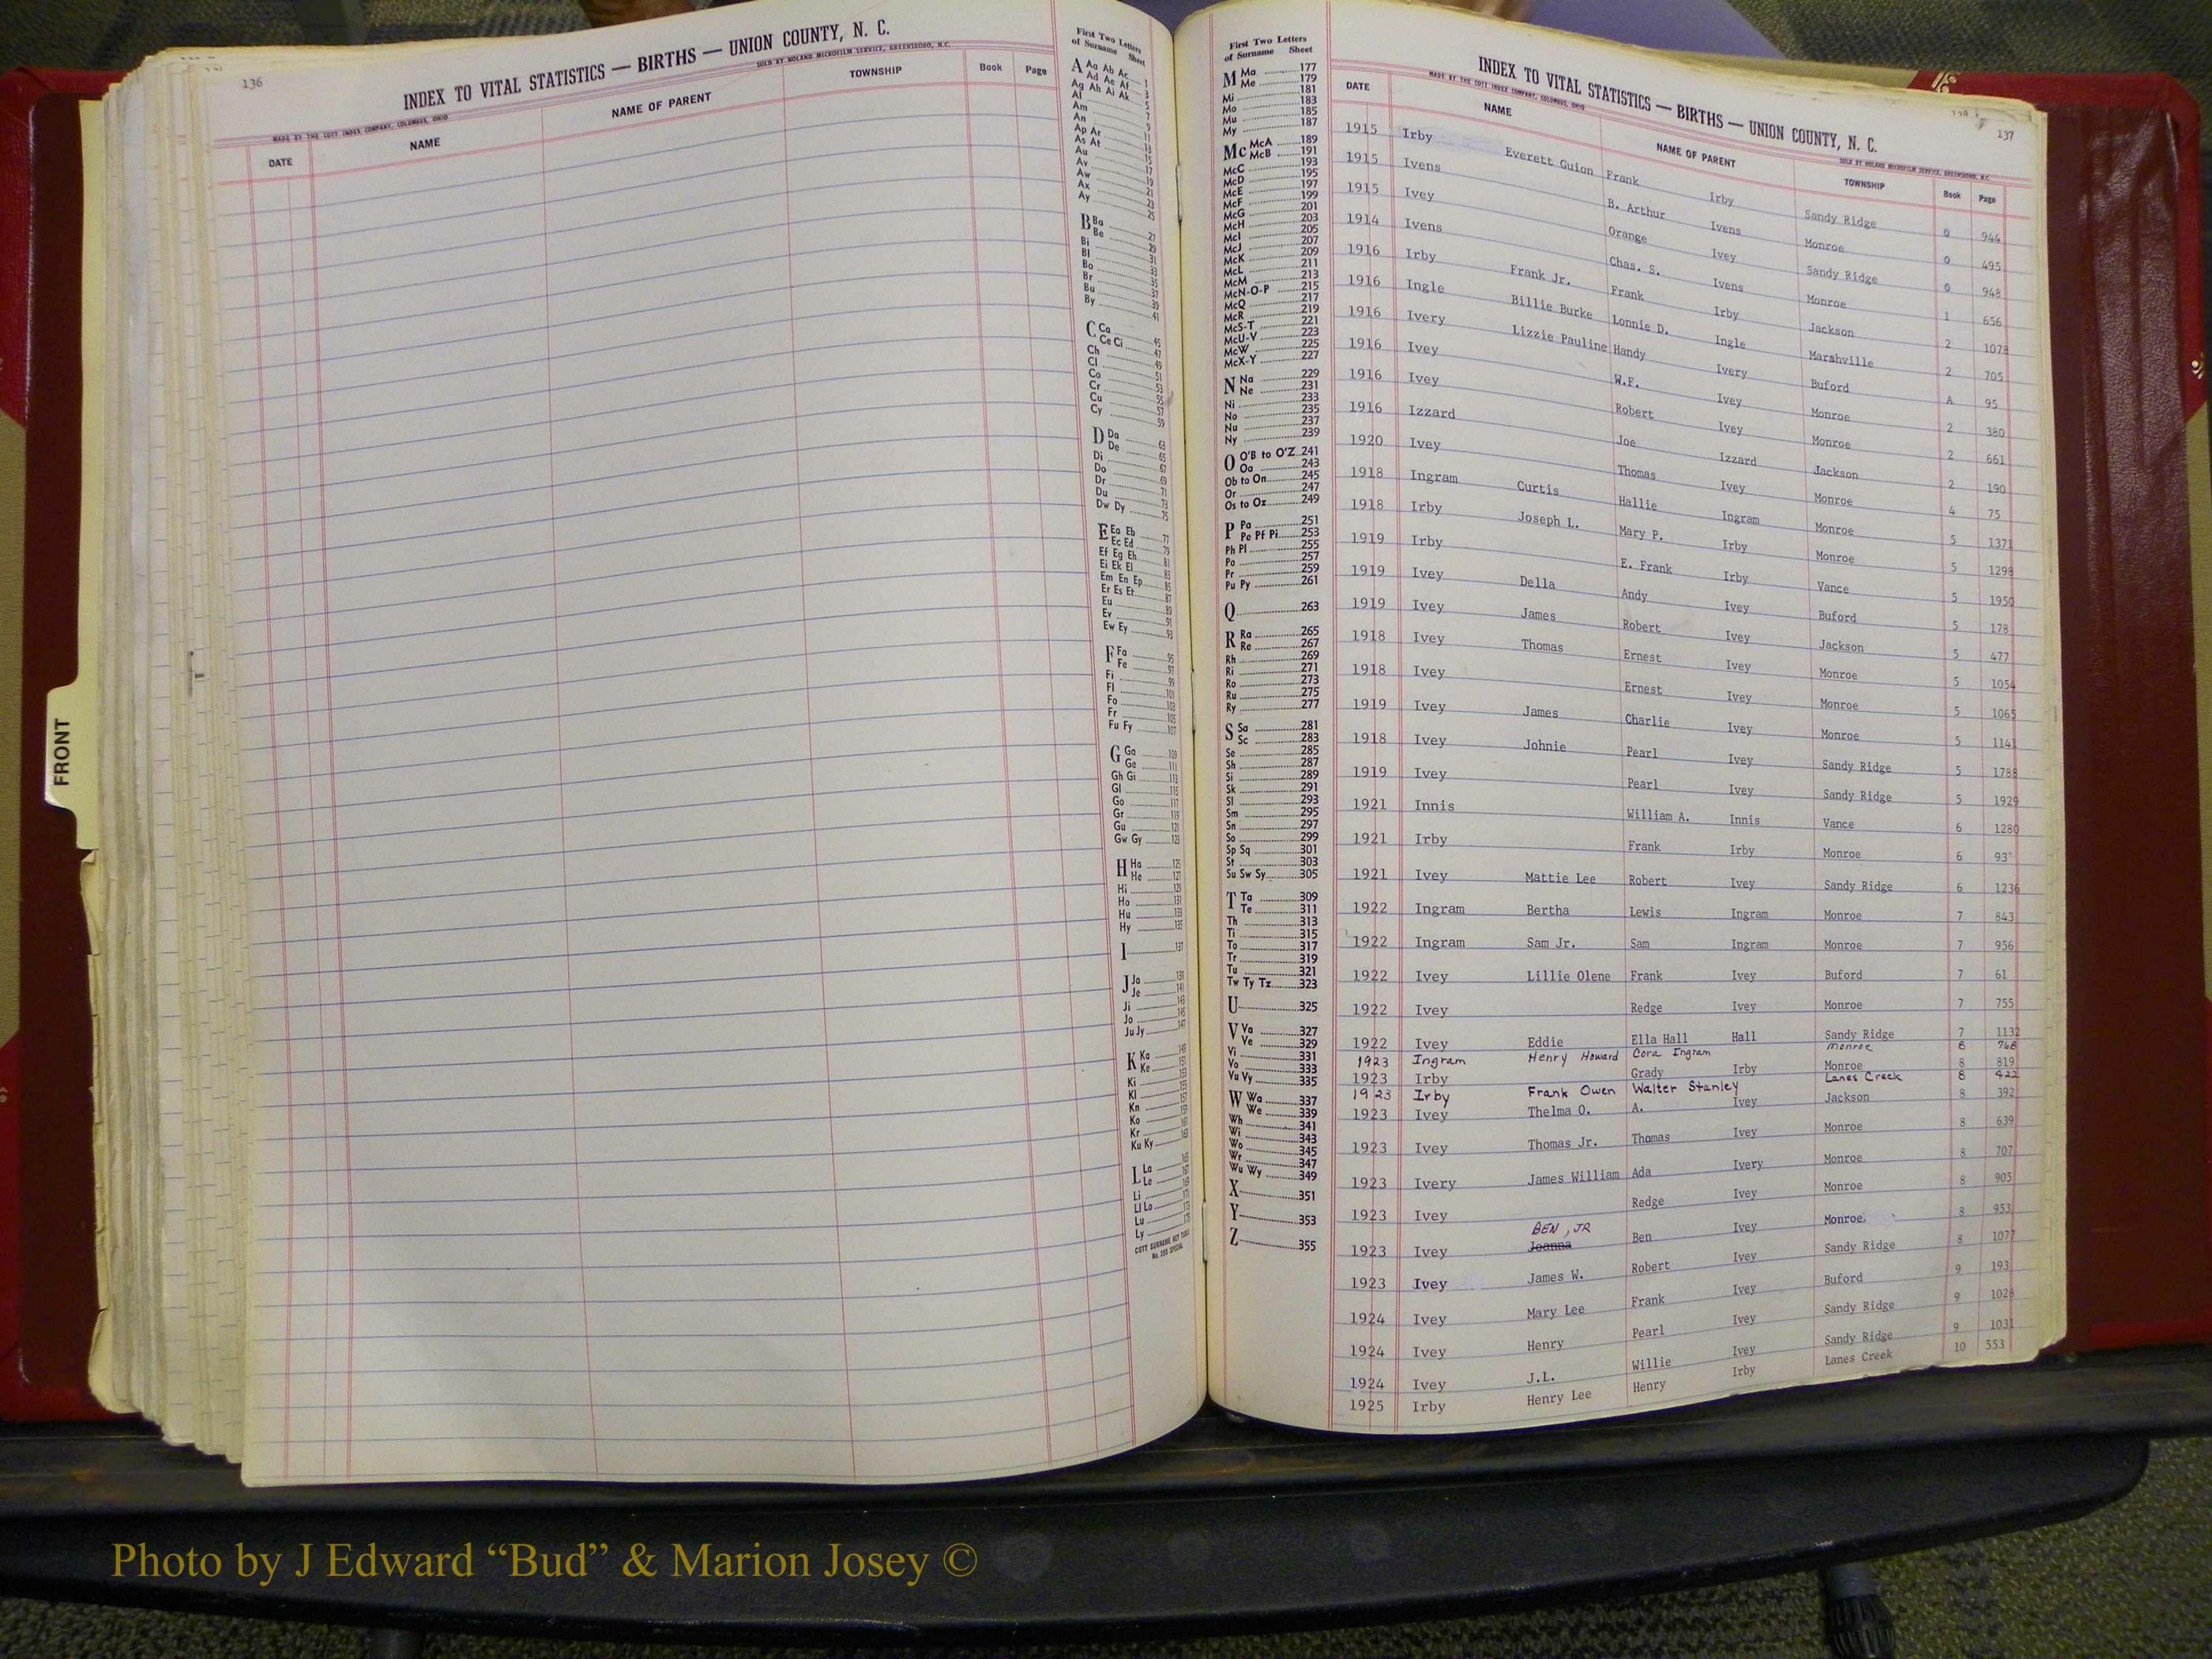 136
INDEX TO VITAL STATISTICS — BIRTHS — UNION COUNTY, N. C.
MADE BY THE COTT INDEX COMPANY, COLUMBUS, OHIO
SOLD BY NOLAND MICROFILM SERVICE, GREENSBORO, N.C.
DATE NAME NAME OF PARENT TOWNSHIP Book Page
First Two Letters
of Surname Sheet
A Aa Ab Ac 1
Ad Ae Af 3
Ag Ah Ai Ak 5
Al 7
Am 9
An 11
Ap Ar 13
As At 15
Au 17
Av 19
Aw 21
Ax 23
Ay 25
B Ba 27
Be 29
Bi 31
Bl 33
Bo 35
Br 37
Bu 39
By 41
C Ca 45
Ce Ci 47
Ch 49
Cl 51
Co 53
Cr 55
Cu 57
Cy 59
D Da 63
De 65
Di 67
Do 69
Dr 71
Du 73
Dw Dy 75
E Ea Eb 77
Ec Ed 79
Ef Eg Eh 81
Ei Ek El 83
Em En Ep 85
Er Es Et 87
Eu 89
Ev 91
Ew Ey 93
F Fa 95
Fe 97
Fi 99
Fl 101
Fo 103
Fr 105
Fu Fy 107
G Ga 109
Ge 111
Gh Gi 113
Gl 115
Go 117
Gr 119
Gu 121
Gw Gy 123
H Ha 125
He 127
Hi 129
Ho 131
Hu 133
Hy 135
I 137
J Ja 139
Je 141
Ji 143
Jo 145
Ju Jy 147
K Ka 149
Ke 151
Ki
Kl
Kn
Ko
Kr
Ku Ky
L La
Le
Li
Ll Lo
Lu
Ly
COTT SURNAME KEY TABLE
FRONT
First Two Letters
of Surname Sheet
M Ma 177
Me 179
Mi 181
Mo 183
Mu 185
My 187
Mc McA 189
McB 191
McC 193
McD 195
McE 197
McF 199
McG 201
McH 203
McI 205
McJ 207
McK 209
McL 211
McM 213
McN-O-P 215
McQ 217
McR 219
McS-T 221
McU-V 223
McW 225
McX-Y 227
N Na 229
Ne 231
Ni 233
No 235
Nu 237
Ny 239
O O'B to O'Z 241
Oa 243
Ob to On 245
Or 247
Os to Oz 249
P Pa 251
Pe Pf Pi 253
Ph Pl 255
Po 257
Pr 259
Pu Py 261
Q 263
R Ra 265
Re 267
Rh 269
Ri 271
Ro 273
Ru 275
Ry 277
S Sa 281
Sc 283
Se 285
Sh 287
Si 289
Sk 291
Sl 293
Sm 295
Sn 297
So 299
Sp Sq 301
St 303
Su Sw Sy 305
T Ta 309
Te 311
Th 313
Ti 315
To 317
Tr 319
Tu 321
Tw Ty Tz 323
U 325
V Va 327
Ve 329
Vi 331
Vo 333
Vu Vy 335
W Wa 337
We 339
Wh 341
Wi 343
Wo 345
Wr 347
Wu Wy 349
X 351
Y 353
Z 355
137
INDEX TO VITAL STATISTICS — BIRTHS — UNION COUNTY, N. C.
MADE BY THE COTT INDEX COMPANY, COLUMBUS, OHIO
SOLD BY NOLAND MICROFILM SERVICE, GREENSBORO, N.C.
DATE NAME NAME OF PARENT TOWNSHIP Book Page
1915 Irby Everett Guion Frank Irby Sandy Ridge 0 944
1915 Ivens B. Arthur Ivens Monroe 0 495
1915 Ivey Orange Ivey Sandy Ridge 0 948
1914 Ivens Chas. S. Ivens Monroe 1 656
1916 Irby Frank Jr. Frank Irby Jackson 2 1078
1916 Ingle Billie Burke Lonnie D. Ingle Marshville 2 705
1916 Ivery Lizzie Pauline Handy Ivery Buford A 95
1916 Ivey W.F. Ivey Monroe 2 380
1916 Ivey Robert Ivey Monroe 2 661
1916 Izzard Joe Izzard Jackson 2 190
1920 Ivey Thomas Ivey Monroe 4 75
1918 Ingram Curtis Hallie Ingram Monroe 5 1371
1918 Irby Joseph L. Mary P. Irby Monroe 5 1298
1919 Irby E. Frank Irby Vance 5 1950
1919 Ivey Della Andy Ivey Buford 5 178
1919 Ivey James Robert Ivey Jackson 5 477
1918 Ivey Thomas Ernest Ivey Monroe 5 1054
1918 Ivey Ernest Ivey Monroe 5 1065
1919 Ivey James Charlie Ivey Monroe 5 1141
1918 Ivey Johnie Pearl Ivey Sandy Ridge 5 1788
1919 Ivey Pearl Ivey Sandy Ridge 5 1929
1921 Innis William A. Innis Vance 6 1280
1921 Irby Frank Irby Monroe 6 93
1921 Ivey Mattie Lee Robert Ivey Sandy Ridge 6 1236
1922 Ingram Bertha Lewis Ingram Monroe 7 843
1922 Ingram Sam Jr. Sam Ingram Monroe 7 956
1922 Ivey Lillie Olene Frank Ivey Buford 7 61
1922 Ivey Redge Ivey Monroe 7 755
1922 Ivey Eddie Ella Hall Hall Sandy Ridge 7 1132
1923 Ingram Henry Howard Cora Ingram Monroe 8 768
1923 Irby Grady Irby Monroe 8 819
1923 Irby Frank Owen Walter Stanley Lanes Creek 8 422
1923 Ivey Thelma O. A. Ivey Jackson 8 392
1923 Ivey Thomas Jr. Thomas Ivey Monroe 8 639
1923 Ivery James William Ada Ivery Monroe 8 707
1923 Ivey Redge Ivey Monroe 8 905
BEN, JR
1923 Ivey Joanna Ben Ivey Monroe 8 953
1923 Ivey James W. Robert Ivey Sandy Ridge 8 1077
1924 Ivey Mary Lee Frank Ivey Buford 9 193
1924 Ivey Henry Pearl Ivey Sandy Ridge 9 1028
1924 Ivey J.L. Willie Ivey Sandy Ridge 9 1031
1925 Irby Henry Lee Henry Irby Lanes Creek 10 553
Photo by J Edward “Bud” & Marion Josey ©